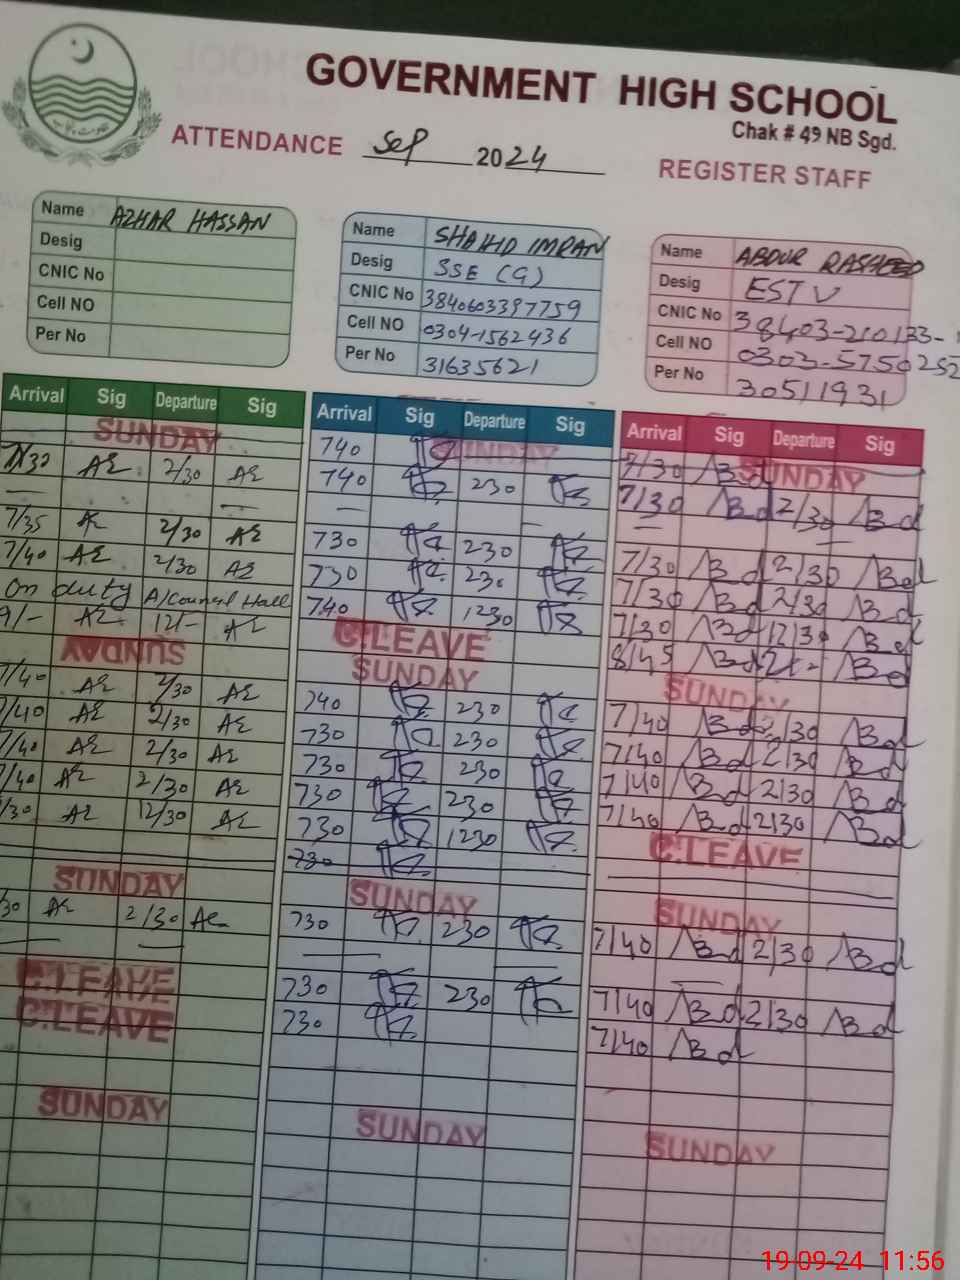 GOVERNMENT HIGH SCHOOL
Chak # 49 NB Sgd.
ATTENDANCE Sep 2024
REGISTER STAFF
Name AZHAR HASSAN
Desig
CNIC No
Cell NO
Per No
Name SHAHID IMRAN
Desig SSE (G)
CNIC No 3840603397759
Cell NO 0304-1562436
Per No 31635621
Name ABDUR RASHEED
Desig EST V
CNIC No 38403-210133-
Cell NO 0303-5750252
Per No 30511931
Arrival Sig Departure Sig
SUNDAY
7/30 AE 2/30 AE
7/35 AE 2/30 AE
7/40 AE 2/30 AE
On duty A/Council Hall
9/- AE 12/- AE
SUNDAY
7/40 AE 2/30 AE
7/40 AE 2/30 AE
7/40 AE 2/30 AE
7/40 AE 2/30 AE
/30 AE 12/30 AE
SUNDAY
/30 AE 2/30 AE
C.LEAVE
C.LEAVE
SUNDAY
Arrival Sig Departure Sig
740 SUNDAY
740 230
730 230
730 230
740 1230
C.LEAVE
SUNDAY
740 230
730 230
730 230
730 230
730 1230
730
SUNDAY
730 230
730 230
730
SUNDAY
Arrival Sig Departure Sig
7/30 Bd SUNDAY
7/30 Bd 2/30 Bd
7/30 Bd 2/30 Bd
7/30 Bd 2/30 Bd
7/30 Bd 12/30 Bd
8/45 Bd Bd
SUNDAY
7/40 Bd 2/30 Bd
7/40 Bd 2/30 Bd
7/40 Bd 2/30 Bd
7/40 Bd 2/30 Bd
C.LEAVE
SUNDAY
7/40 Bd 2/30 Bd
7/40 Bd 2/30 Bd
7/40 Bd
SUNDAY
19-09-24 11:56